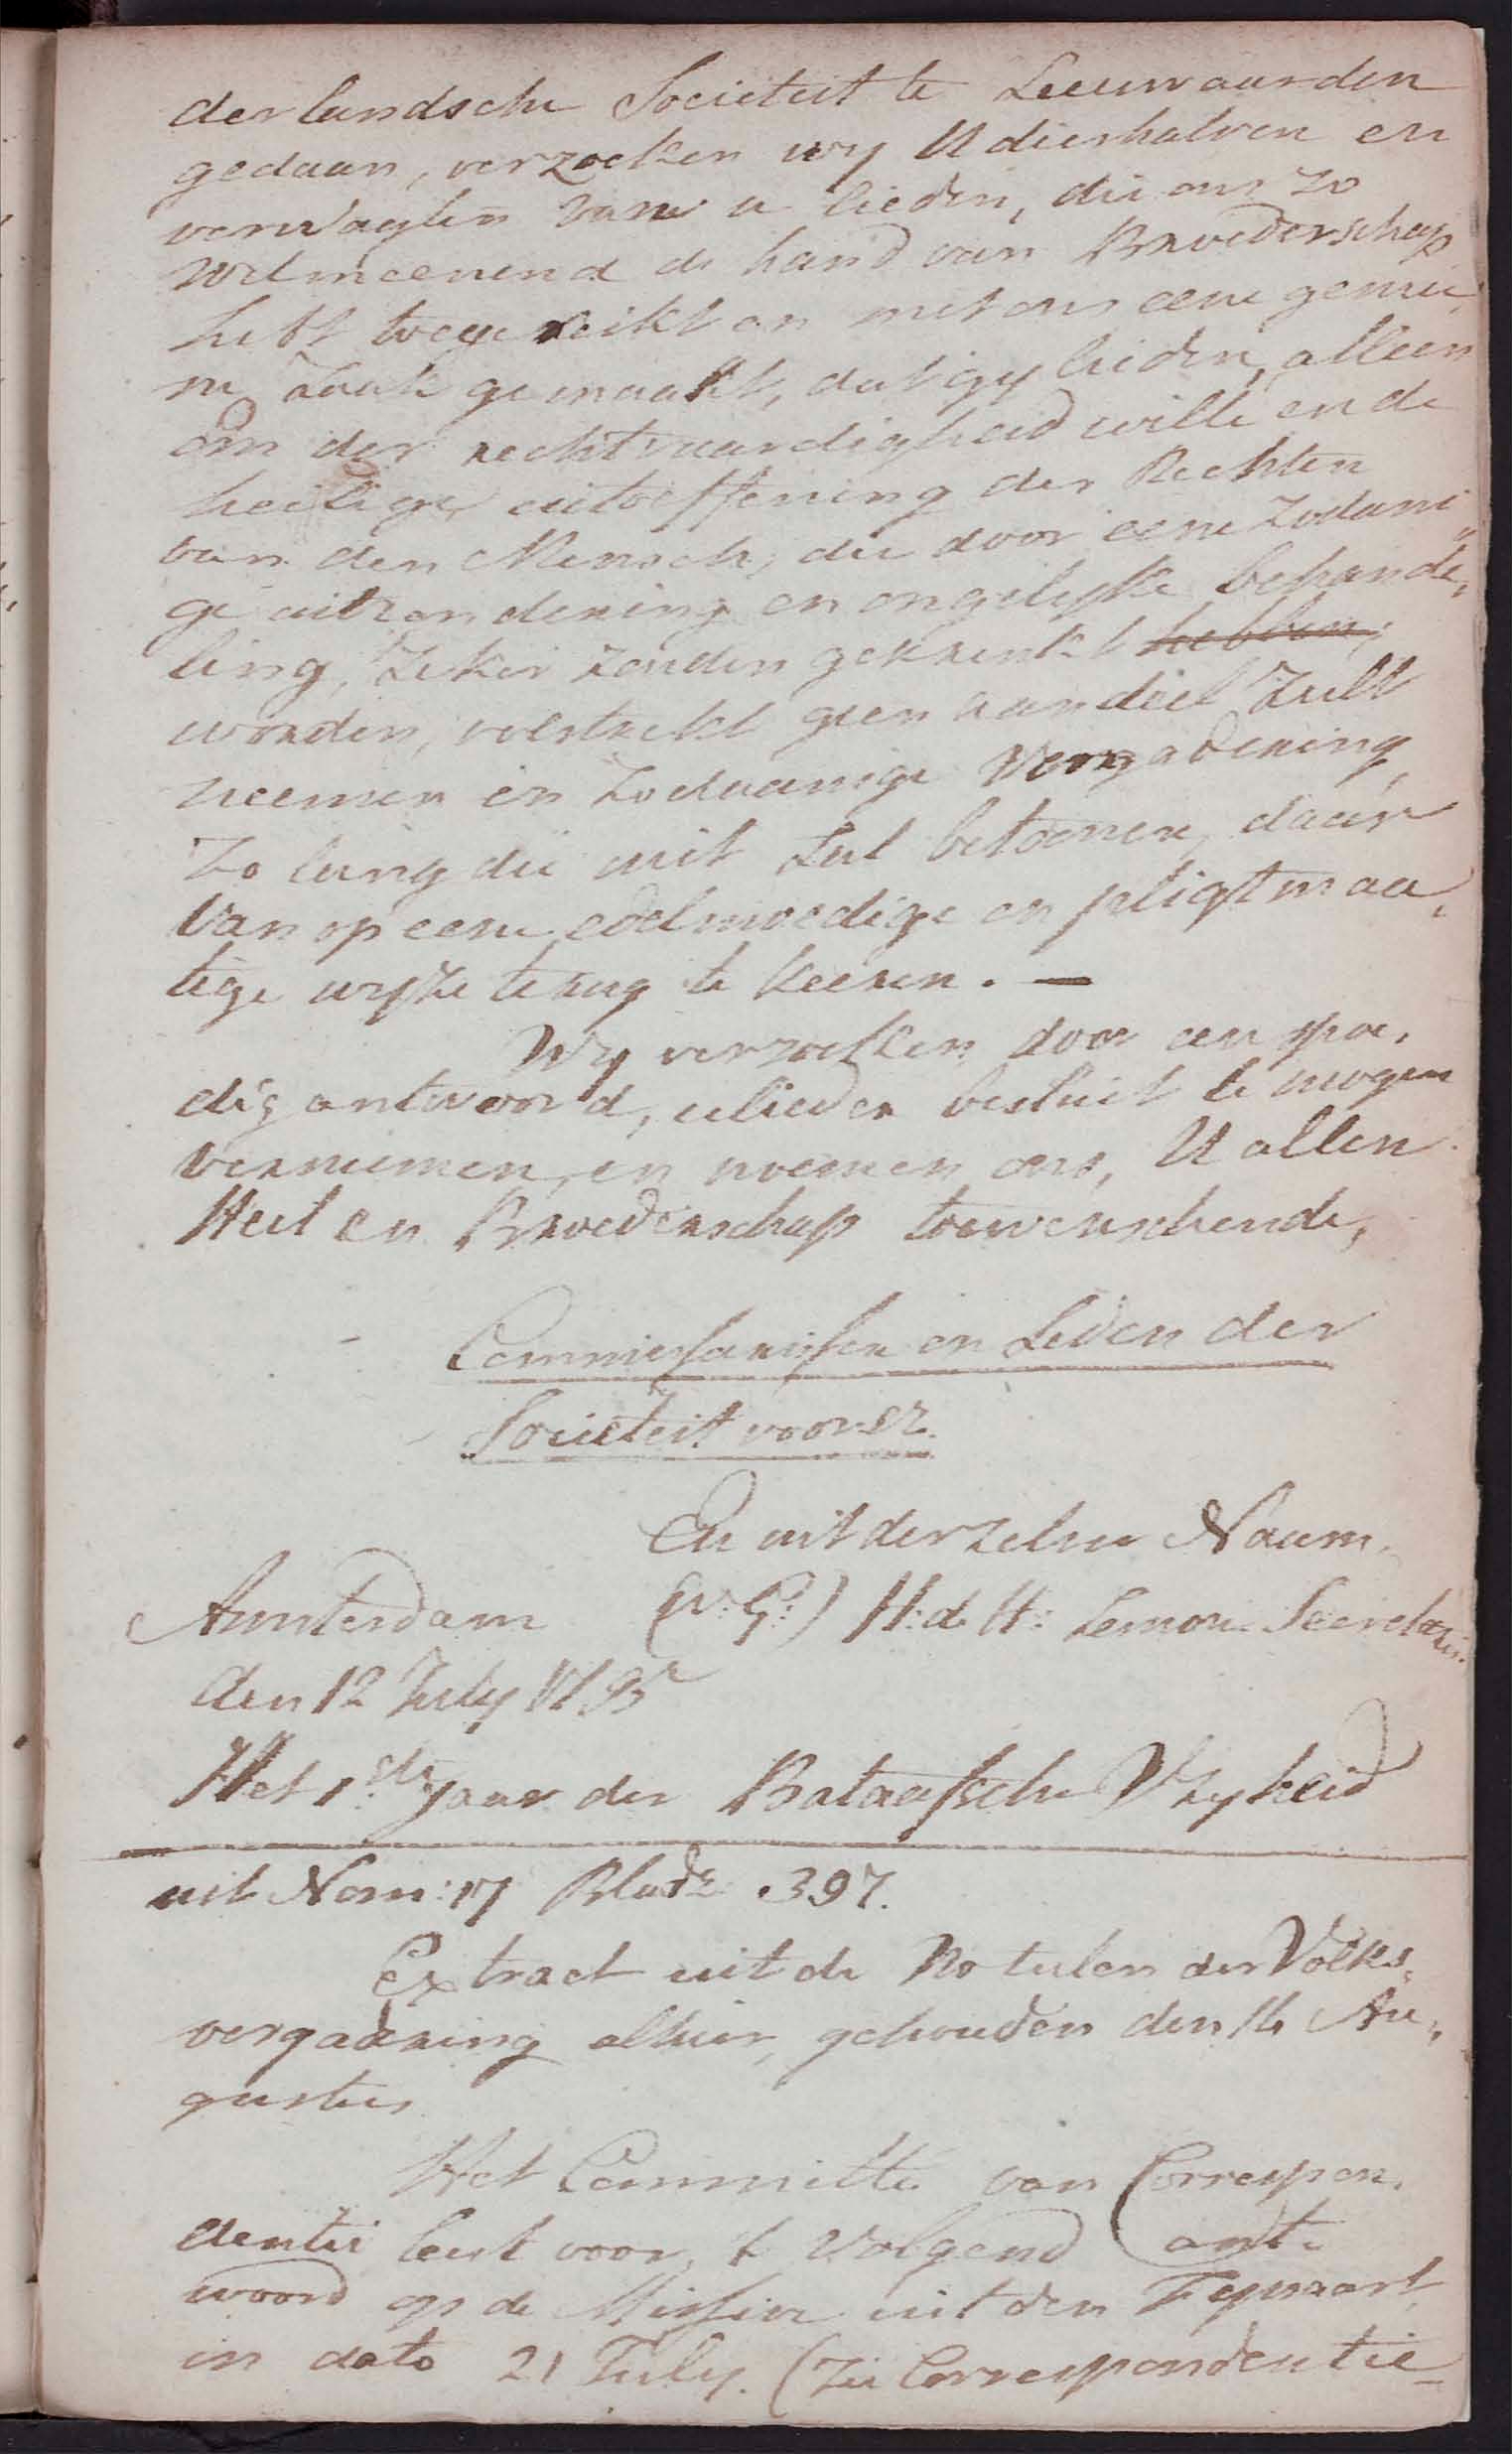 derlandsche Societeit te Leeuwaarden
gedaan, verzoeken wy U dierhalven en
verwagten van u lieden, die ons zo
welmeenend de hand van Broederschap
hebt toegereikt en met ons eene gemee,
ne Zaak gemaakt, dat gy lieden, alleen
om der rechtvaardigheid wille en de
heilige uitoeffening der Rechten
van den Mensch, die door eene zodani"
ge uitzondering en ongelyke behande,
ling, zeker zouden gekrenkt hebben,
worden, volstrekt geen aandeel zult
neemen in zodaanige Vergadering,
zo lang die niet zal betoonen, daar
van op eene edelmoedige en pligtmaa,
tige wyze terug te keeren. —
Wy verzoeken door een spoe,
dig antwoord, ulieden besluit te mogen
verneemen, en noemen ons, U allen
Heil en Broederschap toewenschende,
Commissarissen en Leden der
Societeit voorsz.
En uit derzelver Naam,
Amsterdam (w: G:) H: de H: Lemon Secretaris.
den 12 July 1795
Het 1.ste Jaar der Bataafsche Vryheid
uit Nom: 17 Bladz. 397.
Extract uit de Notulen der Volks,
vergadering alhier, gehouden den 14 Au,
gustus
Het Committe van Correspon,
dentie leest voor, t volgend ant,
woord op de Missive uit den
in dato 21 July. (zie Correspondentie